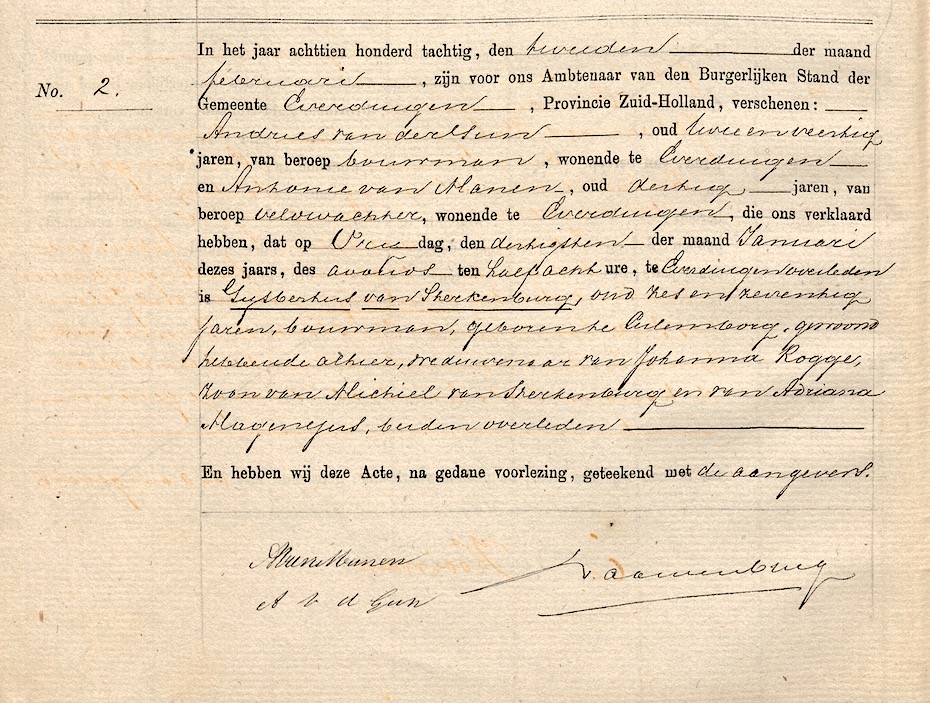 In het jaar achttien honderd tachtig, den tweeden der maand
No. 2.
februari, zijn voor ons Ambtenaar van den Burgerlijken Stand der
Gemeente Everdingen, Provincie Zuid-Holland, verschenen:
Andries van der Gun, oud twee en veertig
jaren, van beroep bouwman, wonende te Everdingen
en Antonie van Manen, oud dertig jaren, van
beroep veldwachter, wonende te Everdingen, die ons verklaard
hebben, dat op Vrijdag, den dertigsten der maand Januari
dezes jaars, des avonds ten half acht ure, te Everdingen overleden
is Gijsbertus van Sterkenburg, oud zes en zeventig
jaren, bouwman, geboren te Culemborg, gewoond
hebbende alhier, weduwenaar van Johanna Rogge,
zoon van Michiel van Sterkenburg en van Adriana
beiden overleden
En hebben wij deze Acte, na gedane voorlezing, geteekend met de aangevers.
AvanManen
A v d Gun